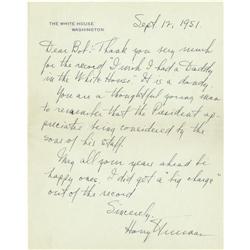 THE WHITE HOUSE
WASHINGTON
Sept 12, 1951.
Dear Bob:- Thank you very much
for the record "I wish I had a Daddy
in the White House" It is a dandy.
You are a thoughtful young man
to remember that the President ap-
preciates being considered by the
sons of his staff.
May all your years ahead be
happy ones. I did get a "big charge"
out of the record
Sincerely,
Harry Truman